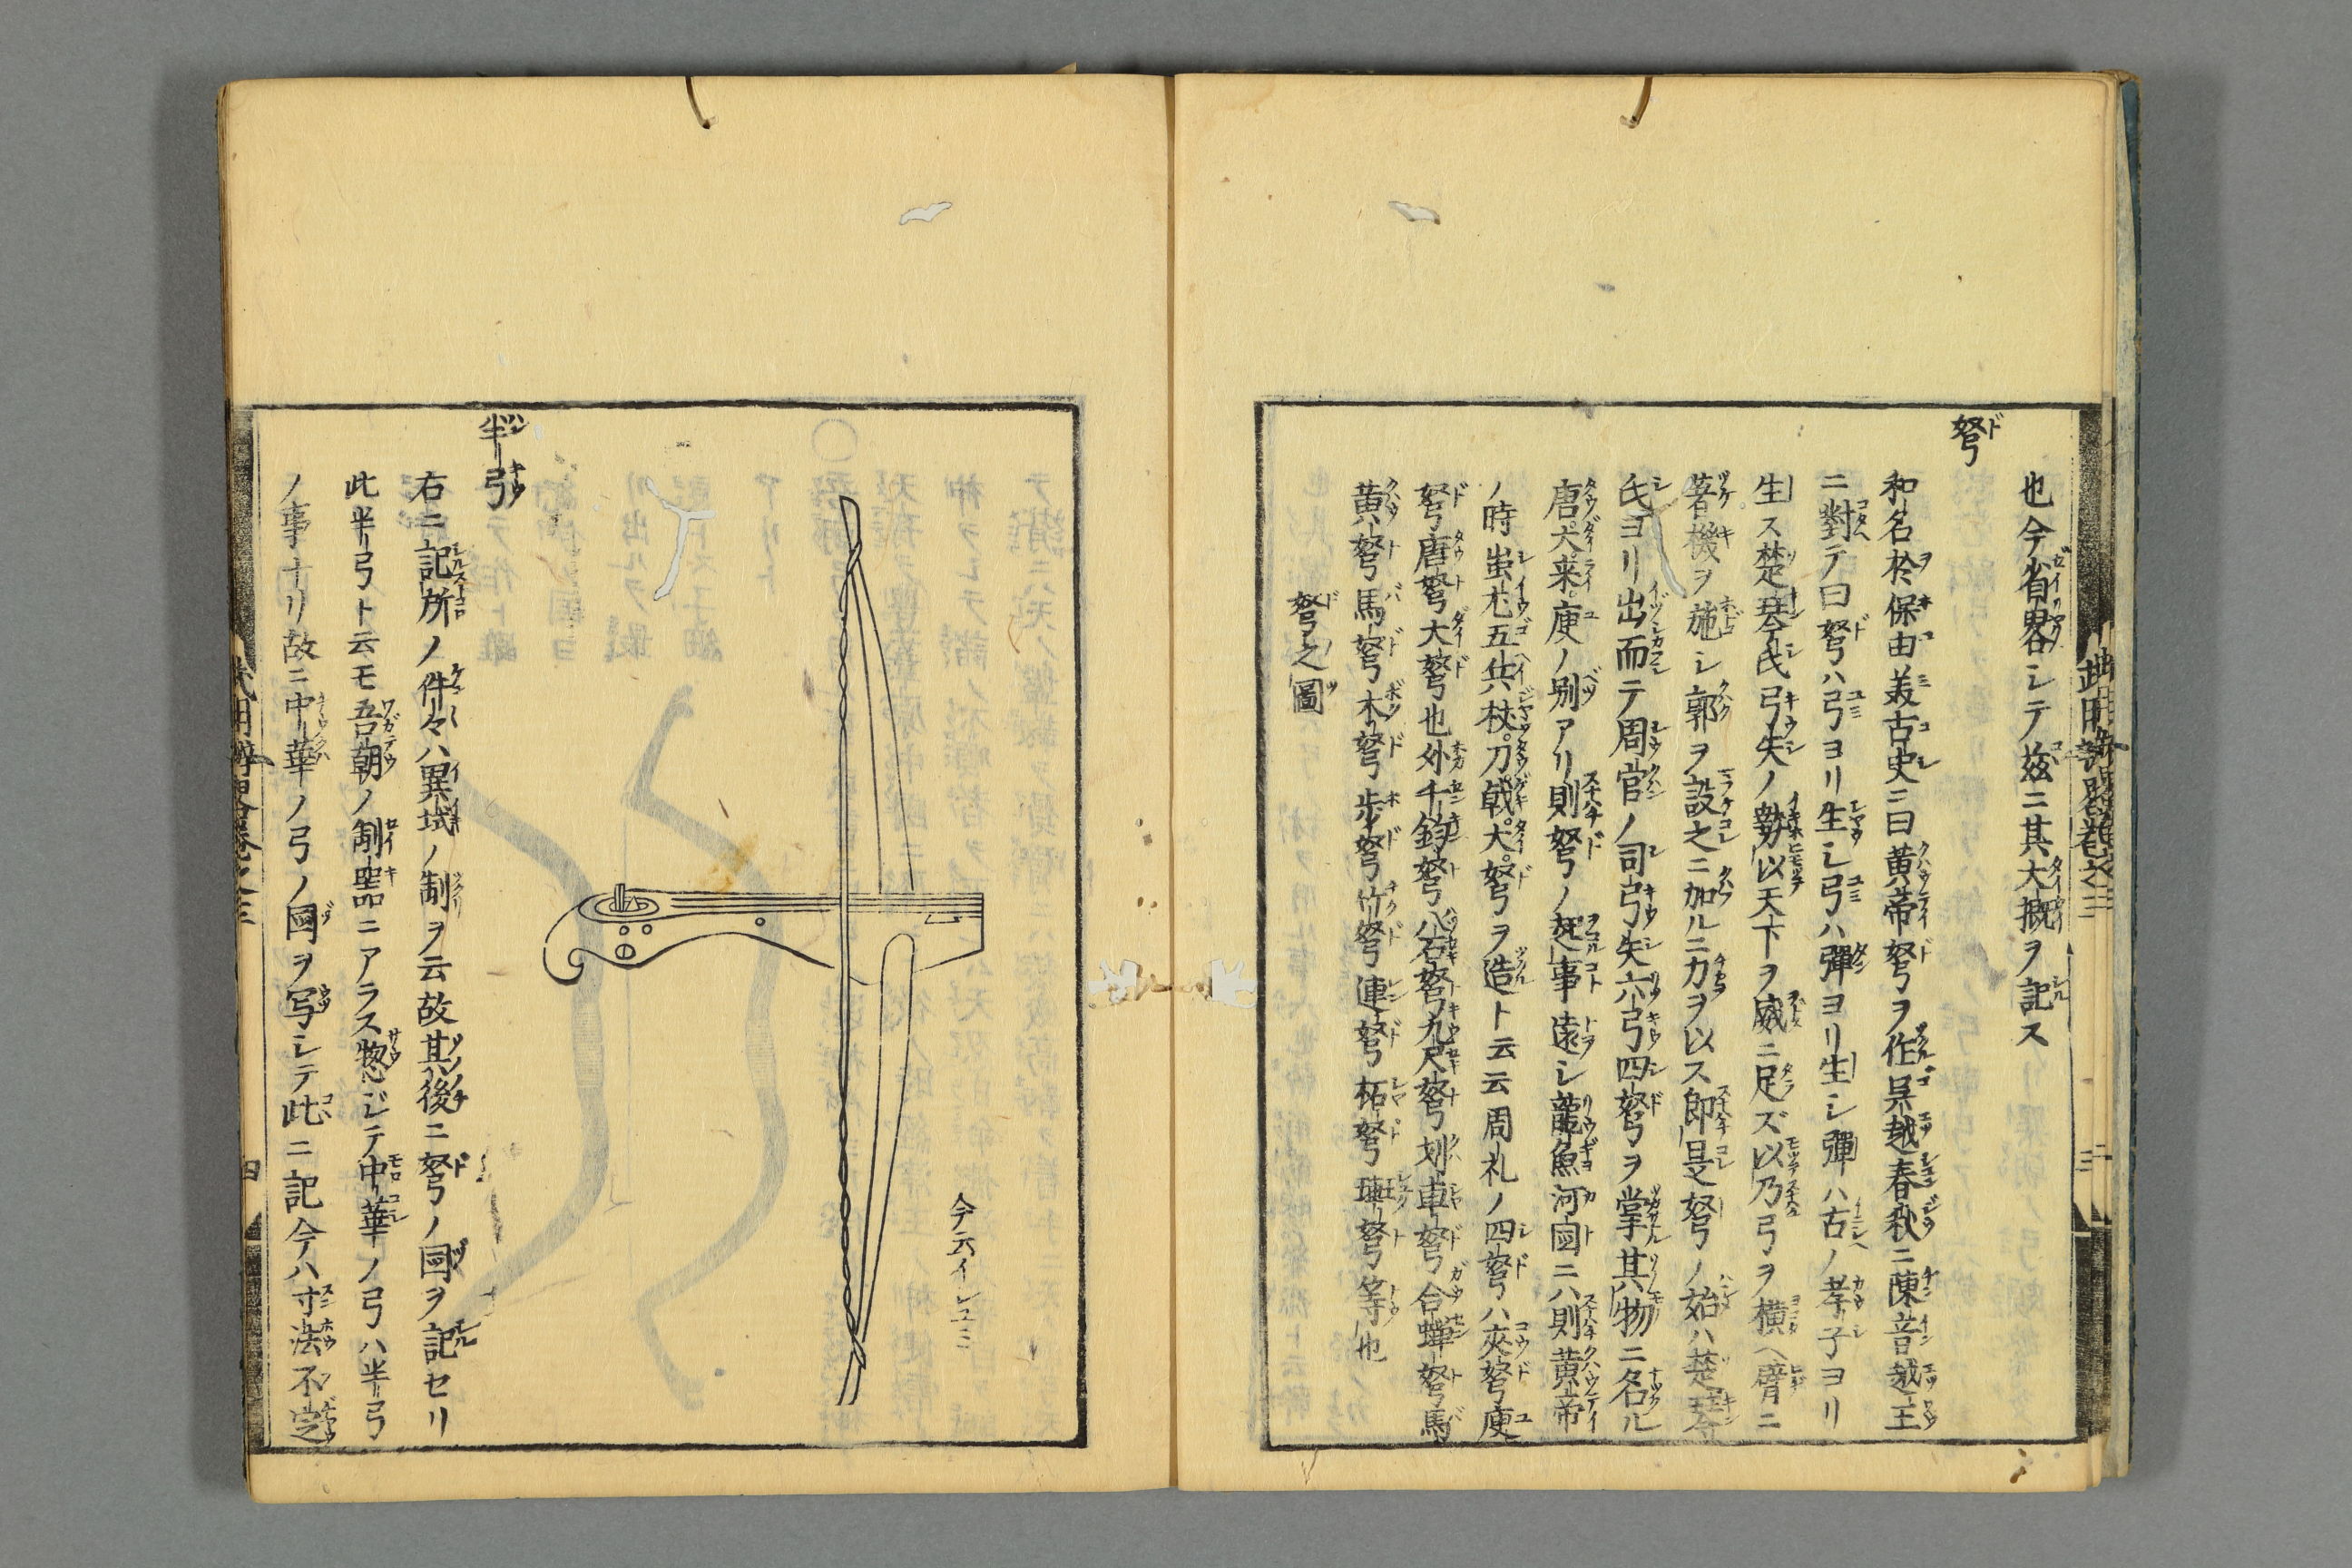 也今省畧シテ茲ニ其大概ヲ記ス
弩
和名於保由美古史ニ曰黄帝弩ヲ作呉越春秋ニ陳音越王
ニ對テ曰弩ハ弓ヨリ生シ弓ハ彈ヨリ生シ彈ハ古ノ孝子ヨリ
生ス楚琴氏弓矢ノ勢以天下ヲ威ニ足ズ以乃弓ヲ横ヘ臂ニ
著機ヲ施シ郭ヲ設之ニ加ルニ力ヲ以ス即是弩ノ始ハ楚琴
氏ヨリ出而テ周官ノ司弓矢六弓四弩ヲ掌其物ニ名ル
唐大来庾ノ別アリ則弩ノ起事遠シ龍魚河圖ニハ則黄帝
ノ時蚩尤五兵杖刀戟大弩ヲ造ト云云周礼ノ四弩ハ夾弩庾
弩唐弩大弩也外千鈞弩八石弩九尺弩 車弩合蝉弩馬
黄弩馬弩木弩歩弩竹弩連弩柘弩 弩等也
弩之圖
今云イシユミ
半弓
右ニ記所ノ件々ハ異域ノ制ヲ云故其後ニ弩ノ圖ヲ記セリ
此半弓ト云モ吾朝ノ制器ニアラス惣ジテ中華ノ弓ハ半弓
ノ事ナリ故ニ中華ノ弓ノ圖ヲ写シテ此ニ記今ハ寸法不定
四